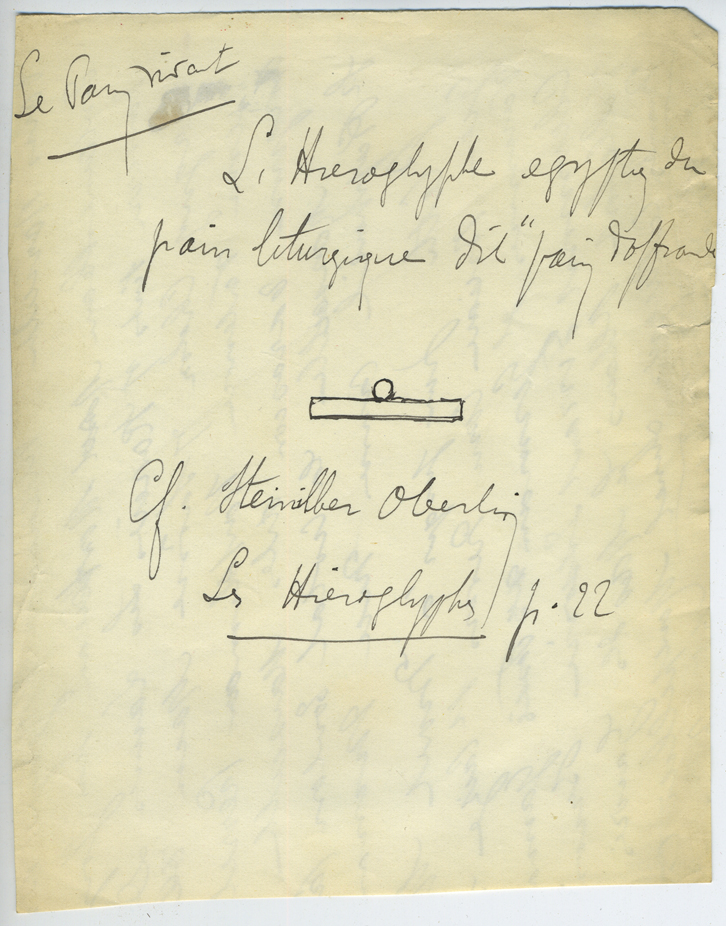 Le Pain vivant
L'Hieroglyphe egyptien du
pain liturgique dit "pain d'offrande
Cf. Steinilber Oberlin
Les Hiéroglyphes p. 22